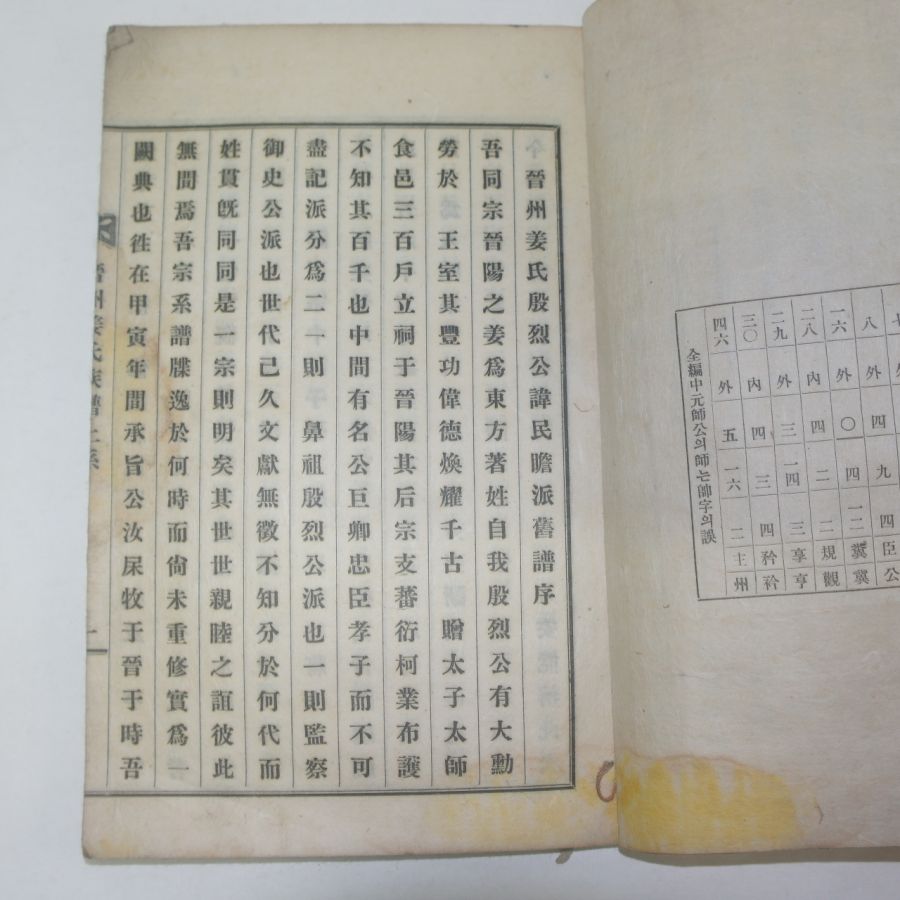 八 外 四 九 四 臣 公
一六 外 〇 四 一二
二八 內 四 二 二 規 觀
二九 外 三 一四 三 享 亨
三〇 內 四 三 四 矜 衿
四六 外 五 一六 二 主 州
全編中元師公의師는帥字의誤
晉州姜氏殷烈公諱民瞻派舊譜序
吾同宗晉陽之姜爲東方著姓自我殷烈公有大勳
勞於 王室其豐功偉德煥耀千古 贈太子太師
食邑三百戶立祠于晉陽其后宗支蕃衍柯業布護
不知其百千也中間有名公巨卿忠臣孝子而不可
盡記派分爲二一則鼻祖殷烈公派也一則監察
御史公派也世代己久文獻無徵不知分於何代而
姓貫旣同同是一宗則明矣其世世親睦之誼彼此
無間焉吾宗系譜牒逸於何時而尙未重修實爲一
闕典也徃在甲寅年間承旨公汝牧于晉于時吾
晉州姜氏族譜上系
一